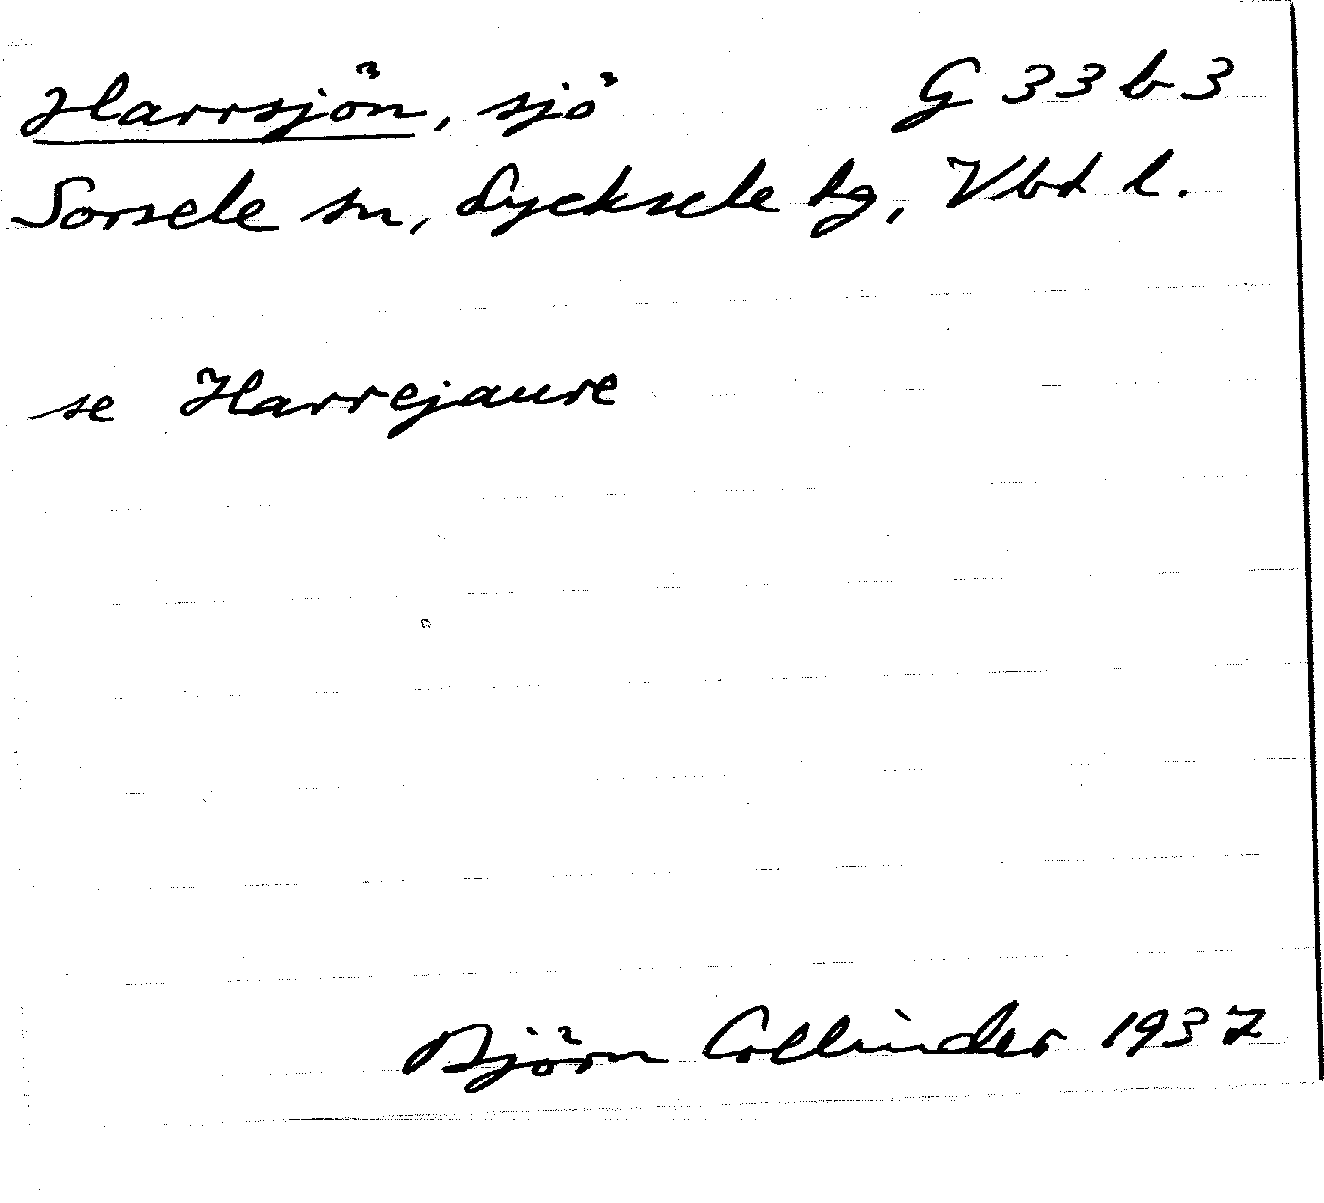 Harrsjön, sjö G 33 b 3
Sorsele sn, Lycksele lg, Vbt l.
se Harrejaure
Björn Collinder 1937